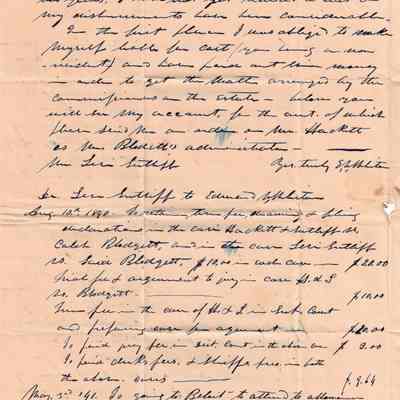 my disbursements have been considerable.
In the first place I was obliged to make
myself liable for cost (you being a non
resident) and have paid out the money
in order to get the matter arranged by the
commissioners on the estate - below you
will see my account, for the amt. of which
please send me an order on Mr. Hackett
as Mr Blodgett's administrator -
Mr Levi Sutliff Yrs truly E. White
Dr. Levi Sutliff to Edward White
Aug 10th 1840. To retaining fee, drawing & filing
declarations in the case Hackett & Sutliff vs
Caleb Blodgett, and in the case Levi Sutliff
vs. Blodgett, $10.00 in each case - $20.00
Trial fee & argument to jury in case H. & S
vs. Blodgett - $10.00
Term fee in the case of H & S in Sup. Court
and preparing case for argument $20.00
To paid jury fee in said court in the above case $ 3.00
To paid clerks fees & Sheriffs fees in both
the above cases - $ 9.64
May 3rd 1841. To going to to attend to allowance